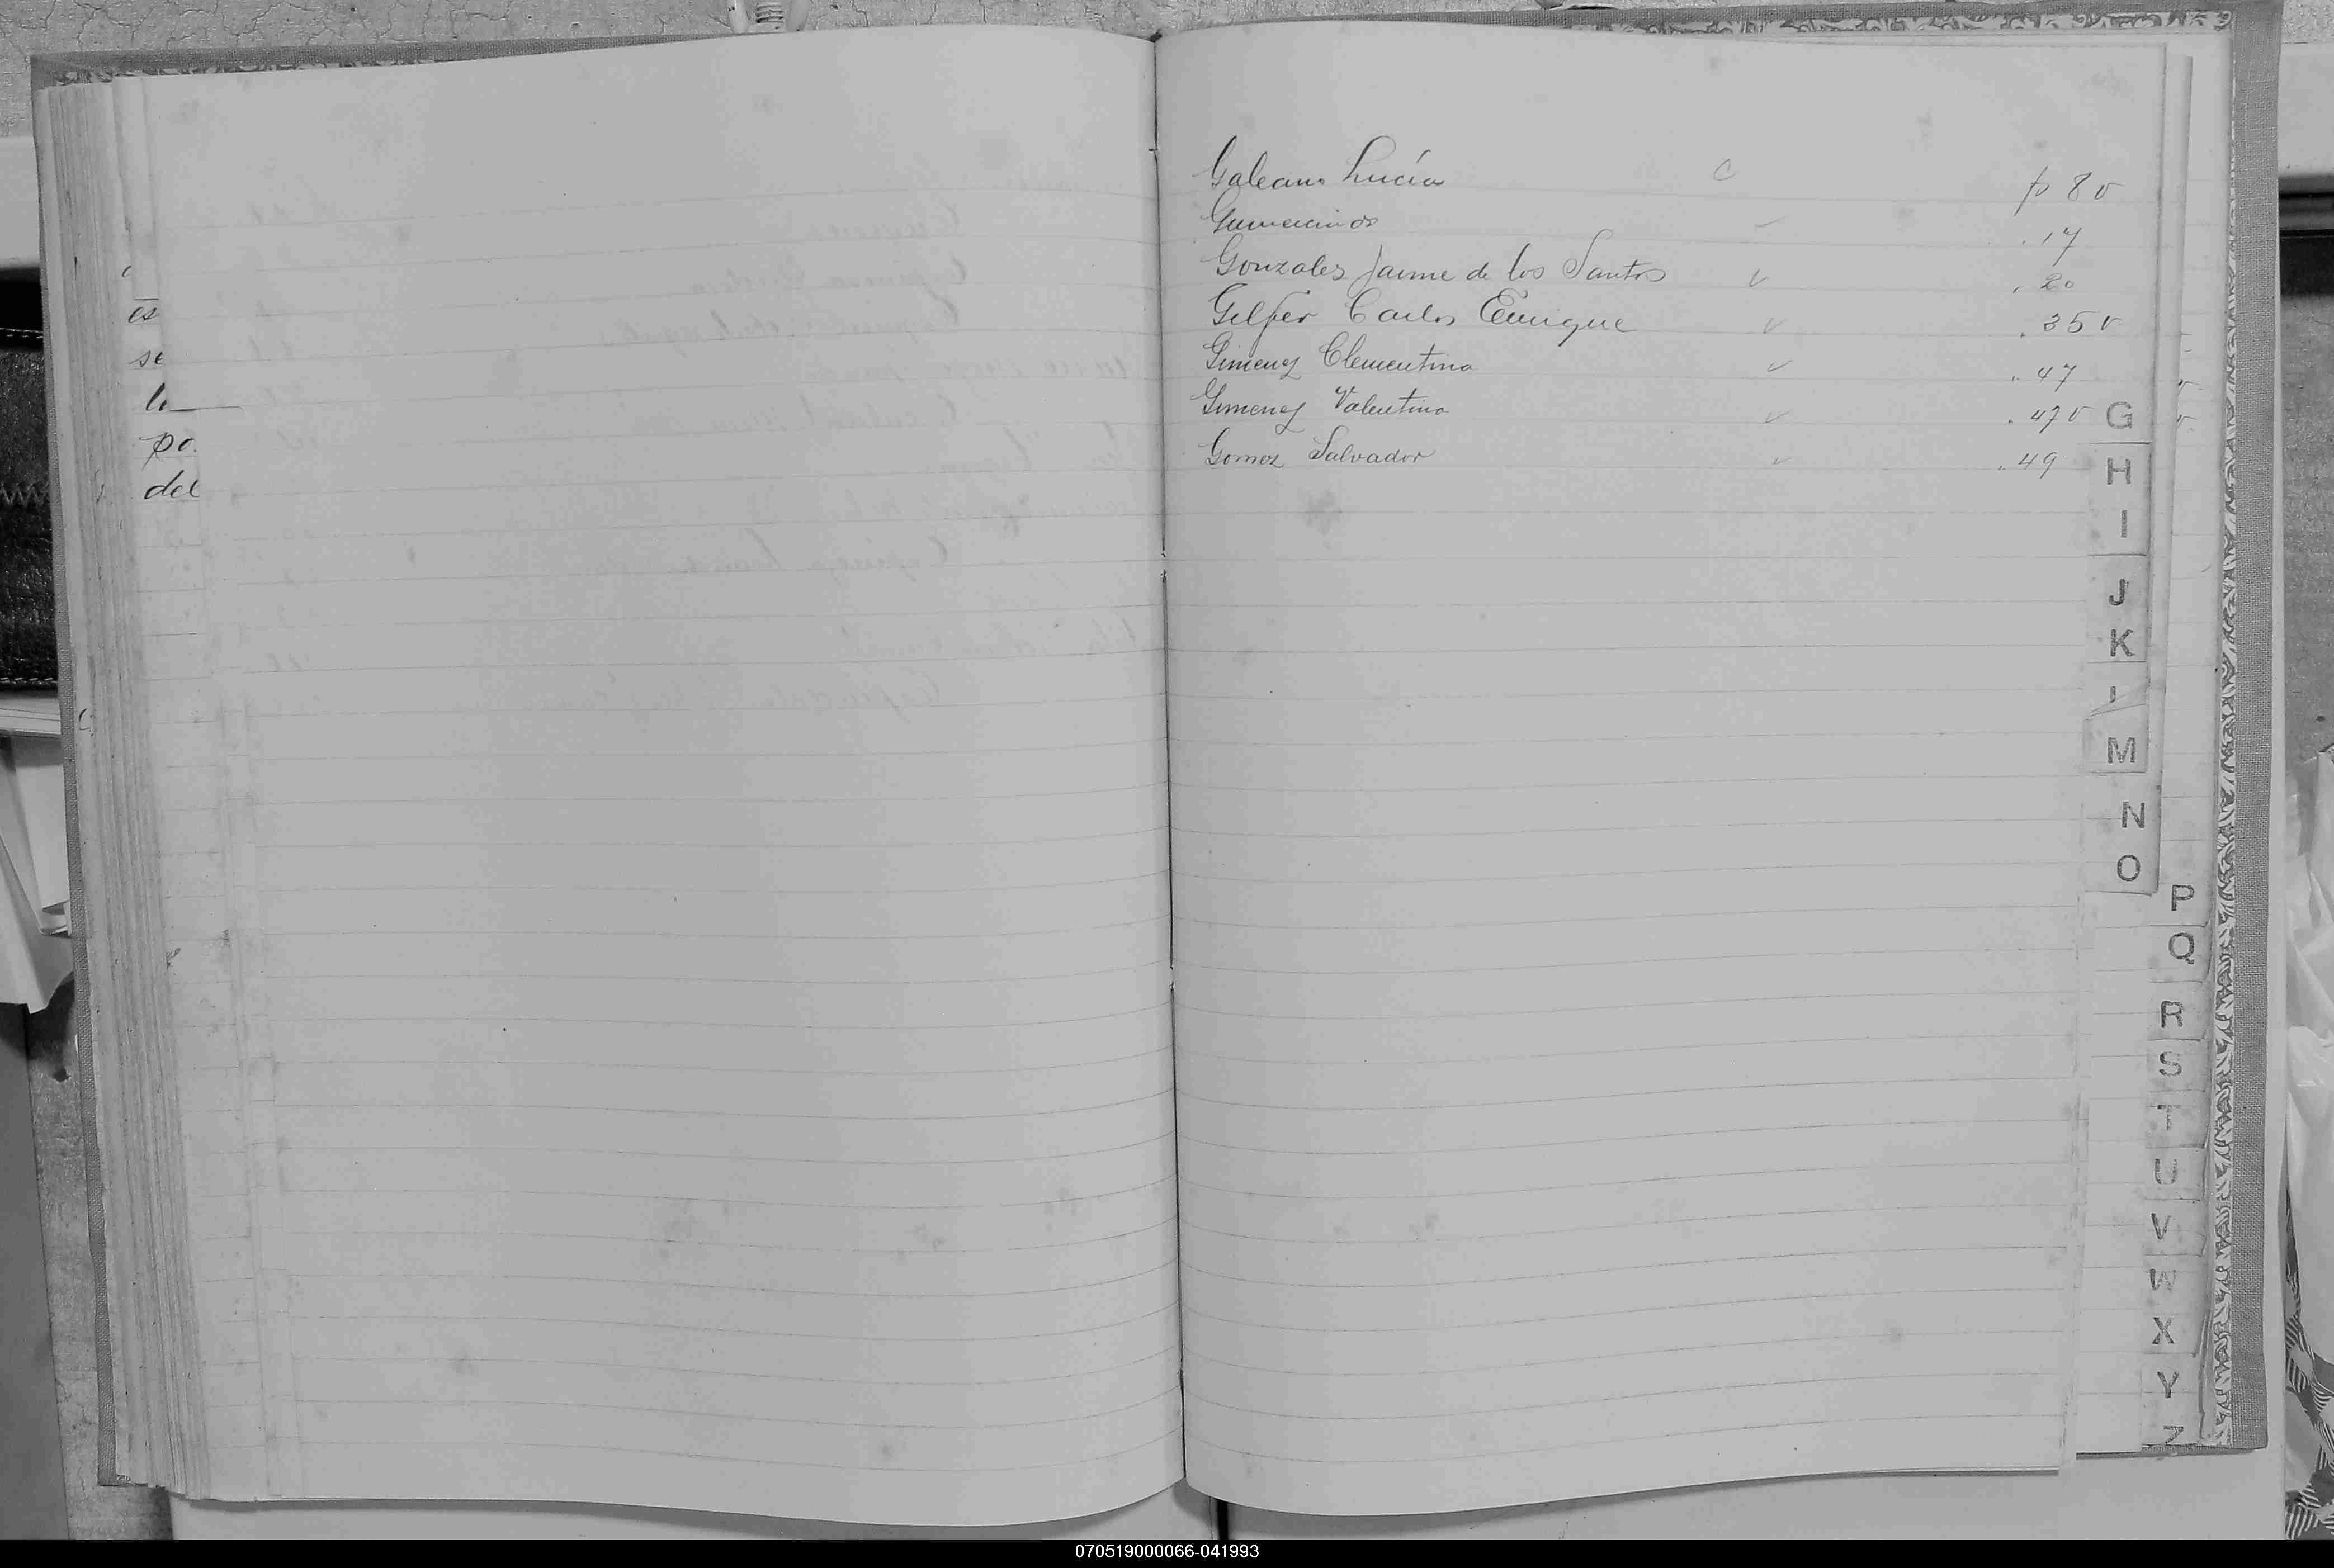 es
se
po.
del
Galeano Lucía C fo 8 v
Gumercindo .17
Gonzales Jaime de los Santos v .20
Gelfer Carlos Enrique v .35 v
Gimenez Clementina v .47
Gimenez Valentina v .47 v
Gomez Salvador v .49
G
H
I
J
K
M
N
O
P
Q
R
S
T
U
V
W
X
Y
Z
070519000066-041993